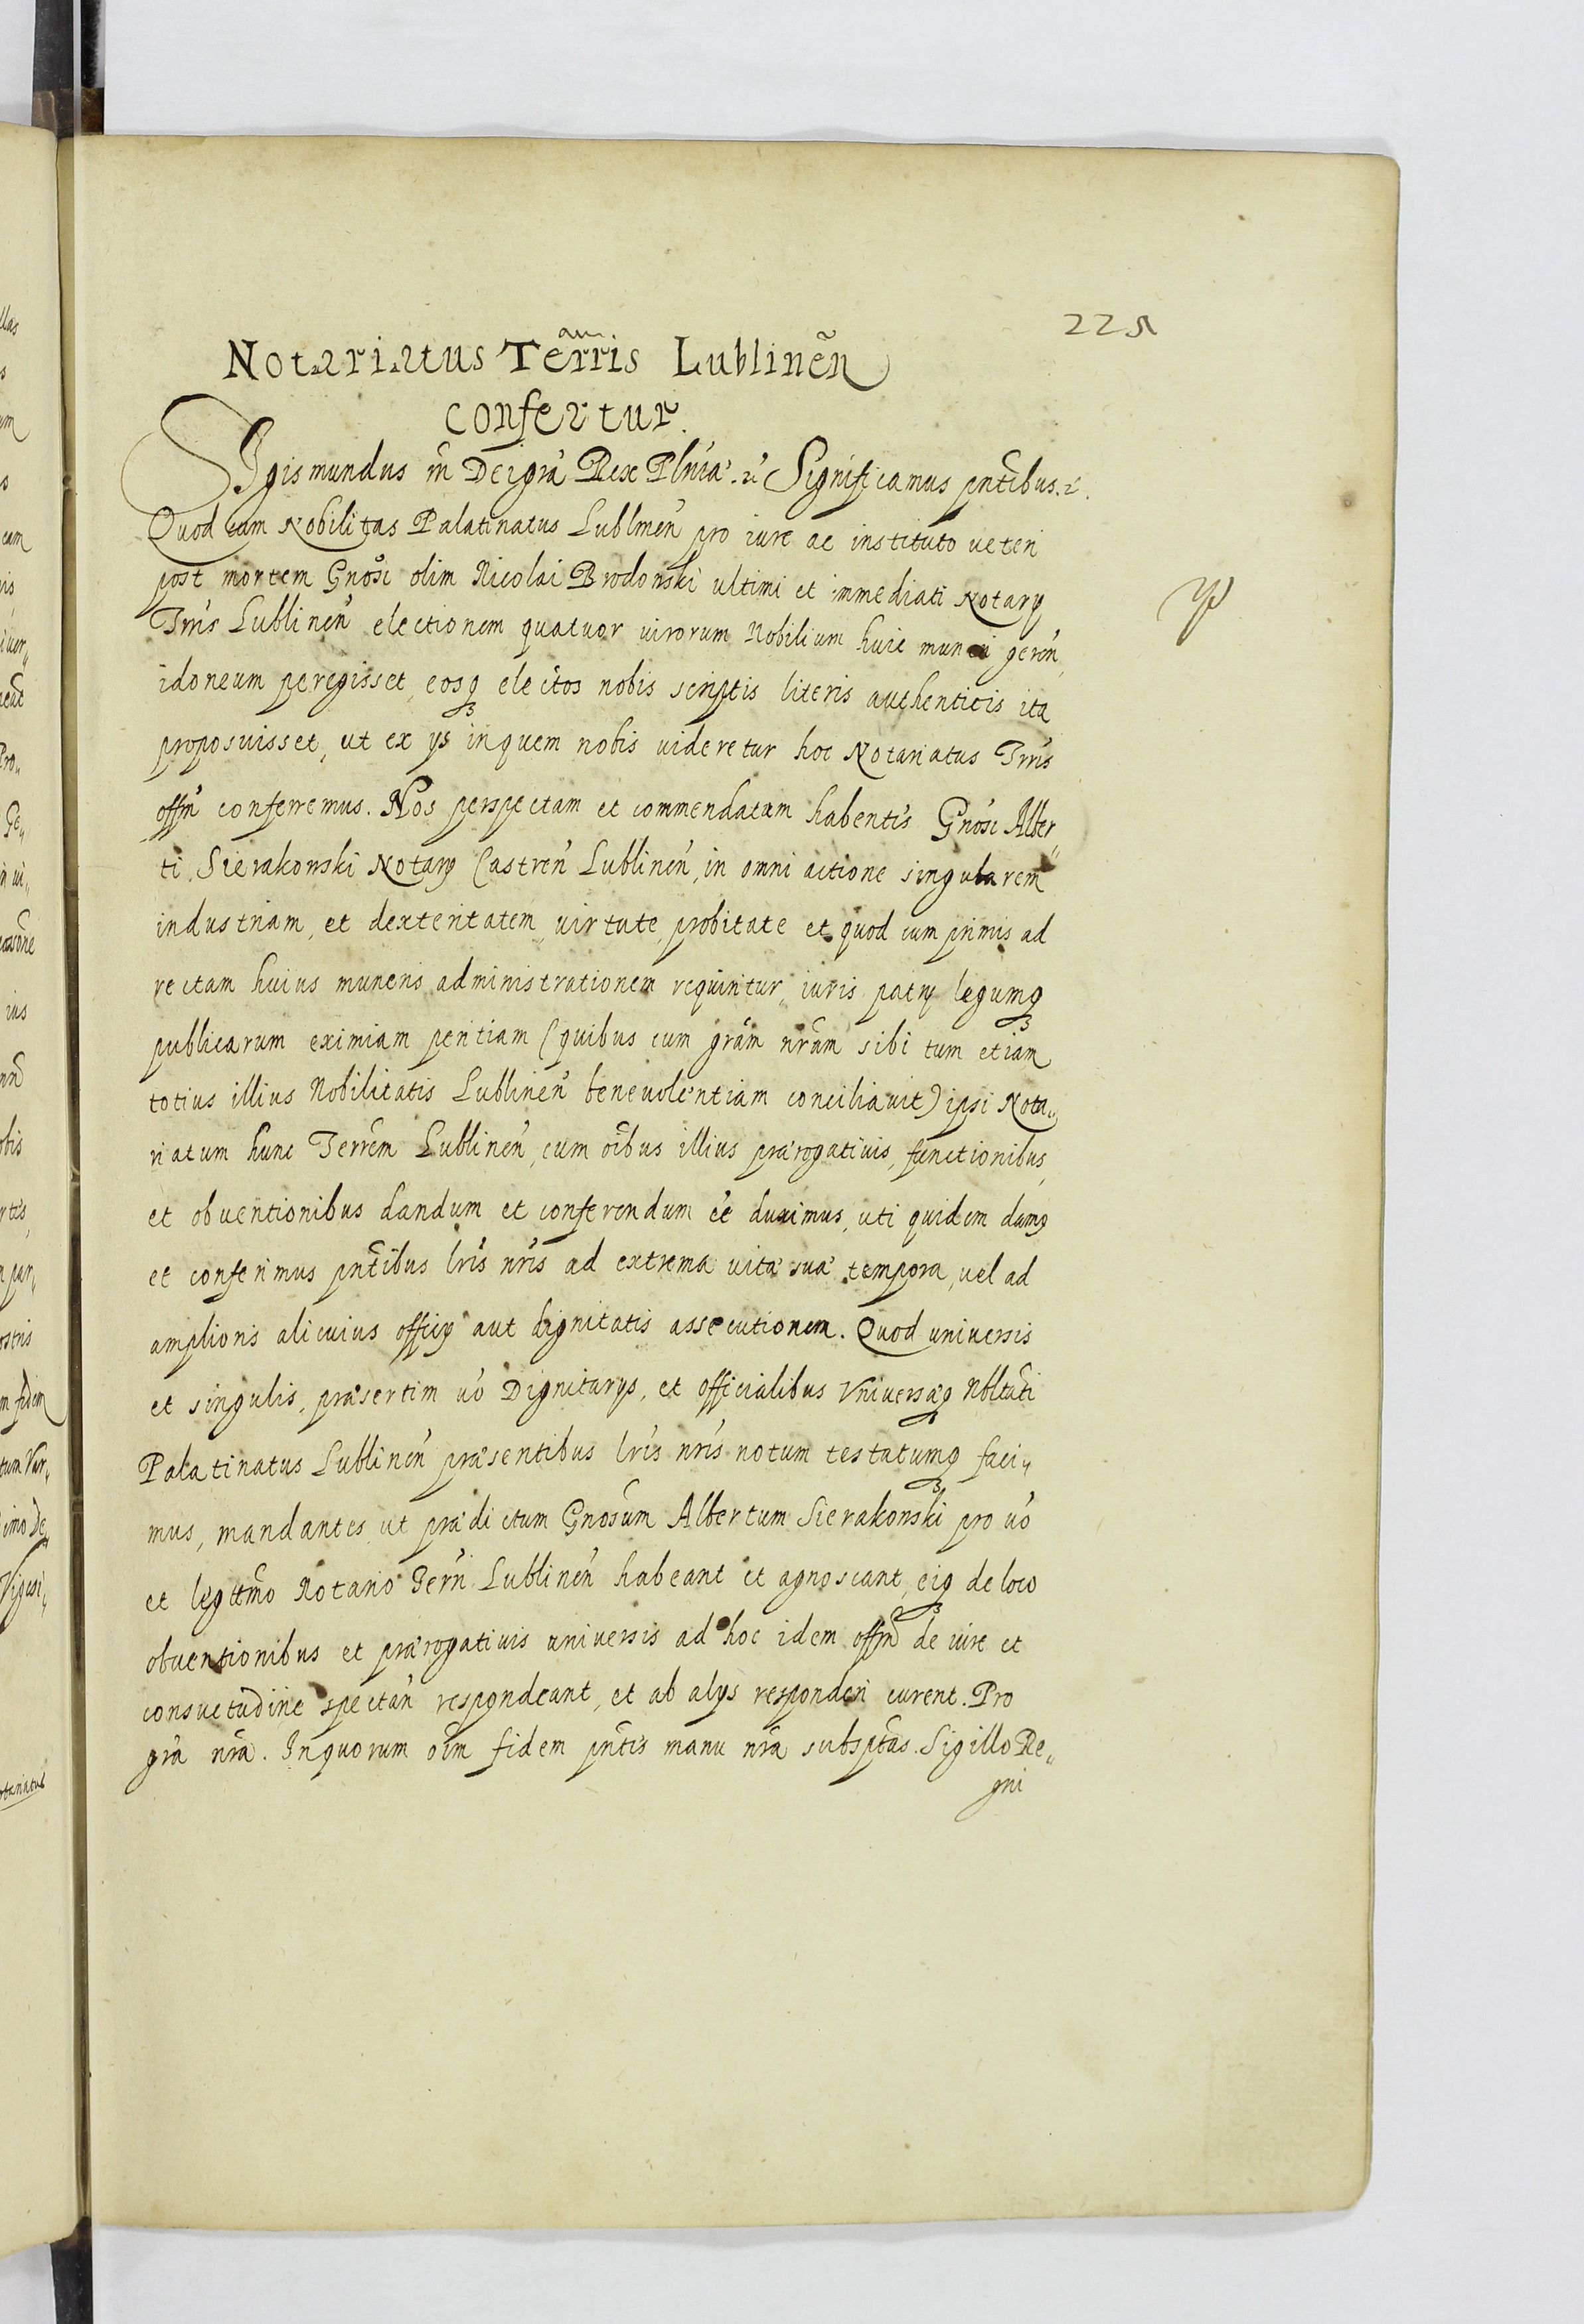 225
Notariatus Terris Lublineñ
confertur.
Sigismundus iii Dei gra Rex Plniæ. &. Significamus pntibus. &.
Quod cum Nobilitas Palatinatus Lublineñ pro iure ac instituto ueteri
post mortem Gnosi olim Nicolai Brodowski ultimi et immediati Notary
Trris Lublineñ electionem quatuor uirorum Nobilium huic muneri gereñ,
idoneum peregisset, eosq₃ electos nobis scriptis literis authenticis ita
proposuisset, ut ex ys in quem nobis uideretur hoc Notariatus Trris
offm conferremus. Nos perspectam et commendatam habentis Gnosi Alber„
ti Sierakowski Notary Castreñ Lublineñ, in omni actione singularem
industriam, et dexteritatem, uirtute, probitate et quod cum primis ad
rectam huius muneris administrationem requiritur, iuris patry legumq₃
publicarum eximiam peritiam (quibus cum gram nram sibi tum etiam
totius illius Nobilitatis Lublineñ beneuolentiam conciliauit) ipsi Nota„
riatum hunc Terrem Lublineñ, cum oibus illius prærogatiuis, functionibus,
et obuentionibus dandum et conferendum ee duximus, uti quidem damg
et conferimus pntibus lris nris ad extrema uitæ suæ tempora, uel ad
amplioris alicuius officy aut dignitatis assecutionem. Quod uniuersis
et singulis, præsertim uo Dignitarys, et officialibus Vniuersæq₃ Nbltati
Palatinatus Lublineñ præsentibus lris nris notum testatumq₃ faci„
mus, mandantes, ut prædictum Gnosum Albertum Sierakowski pro uo
et legttmo Notario Terri Lublineñ habeant et agnoscant, eiq₃ de loco
obuentionibus et prærogatiuis uniuersis ad hoc idem offm de iure et
consuetudine spectañ respondeant, et ab alys responderi curent. Pro
gra nra. In quorum oim fidem pntis manu nra subsptas. Sigillo Re„
gni